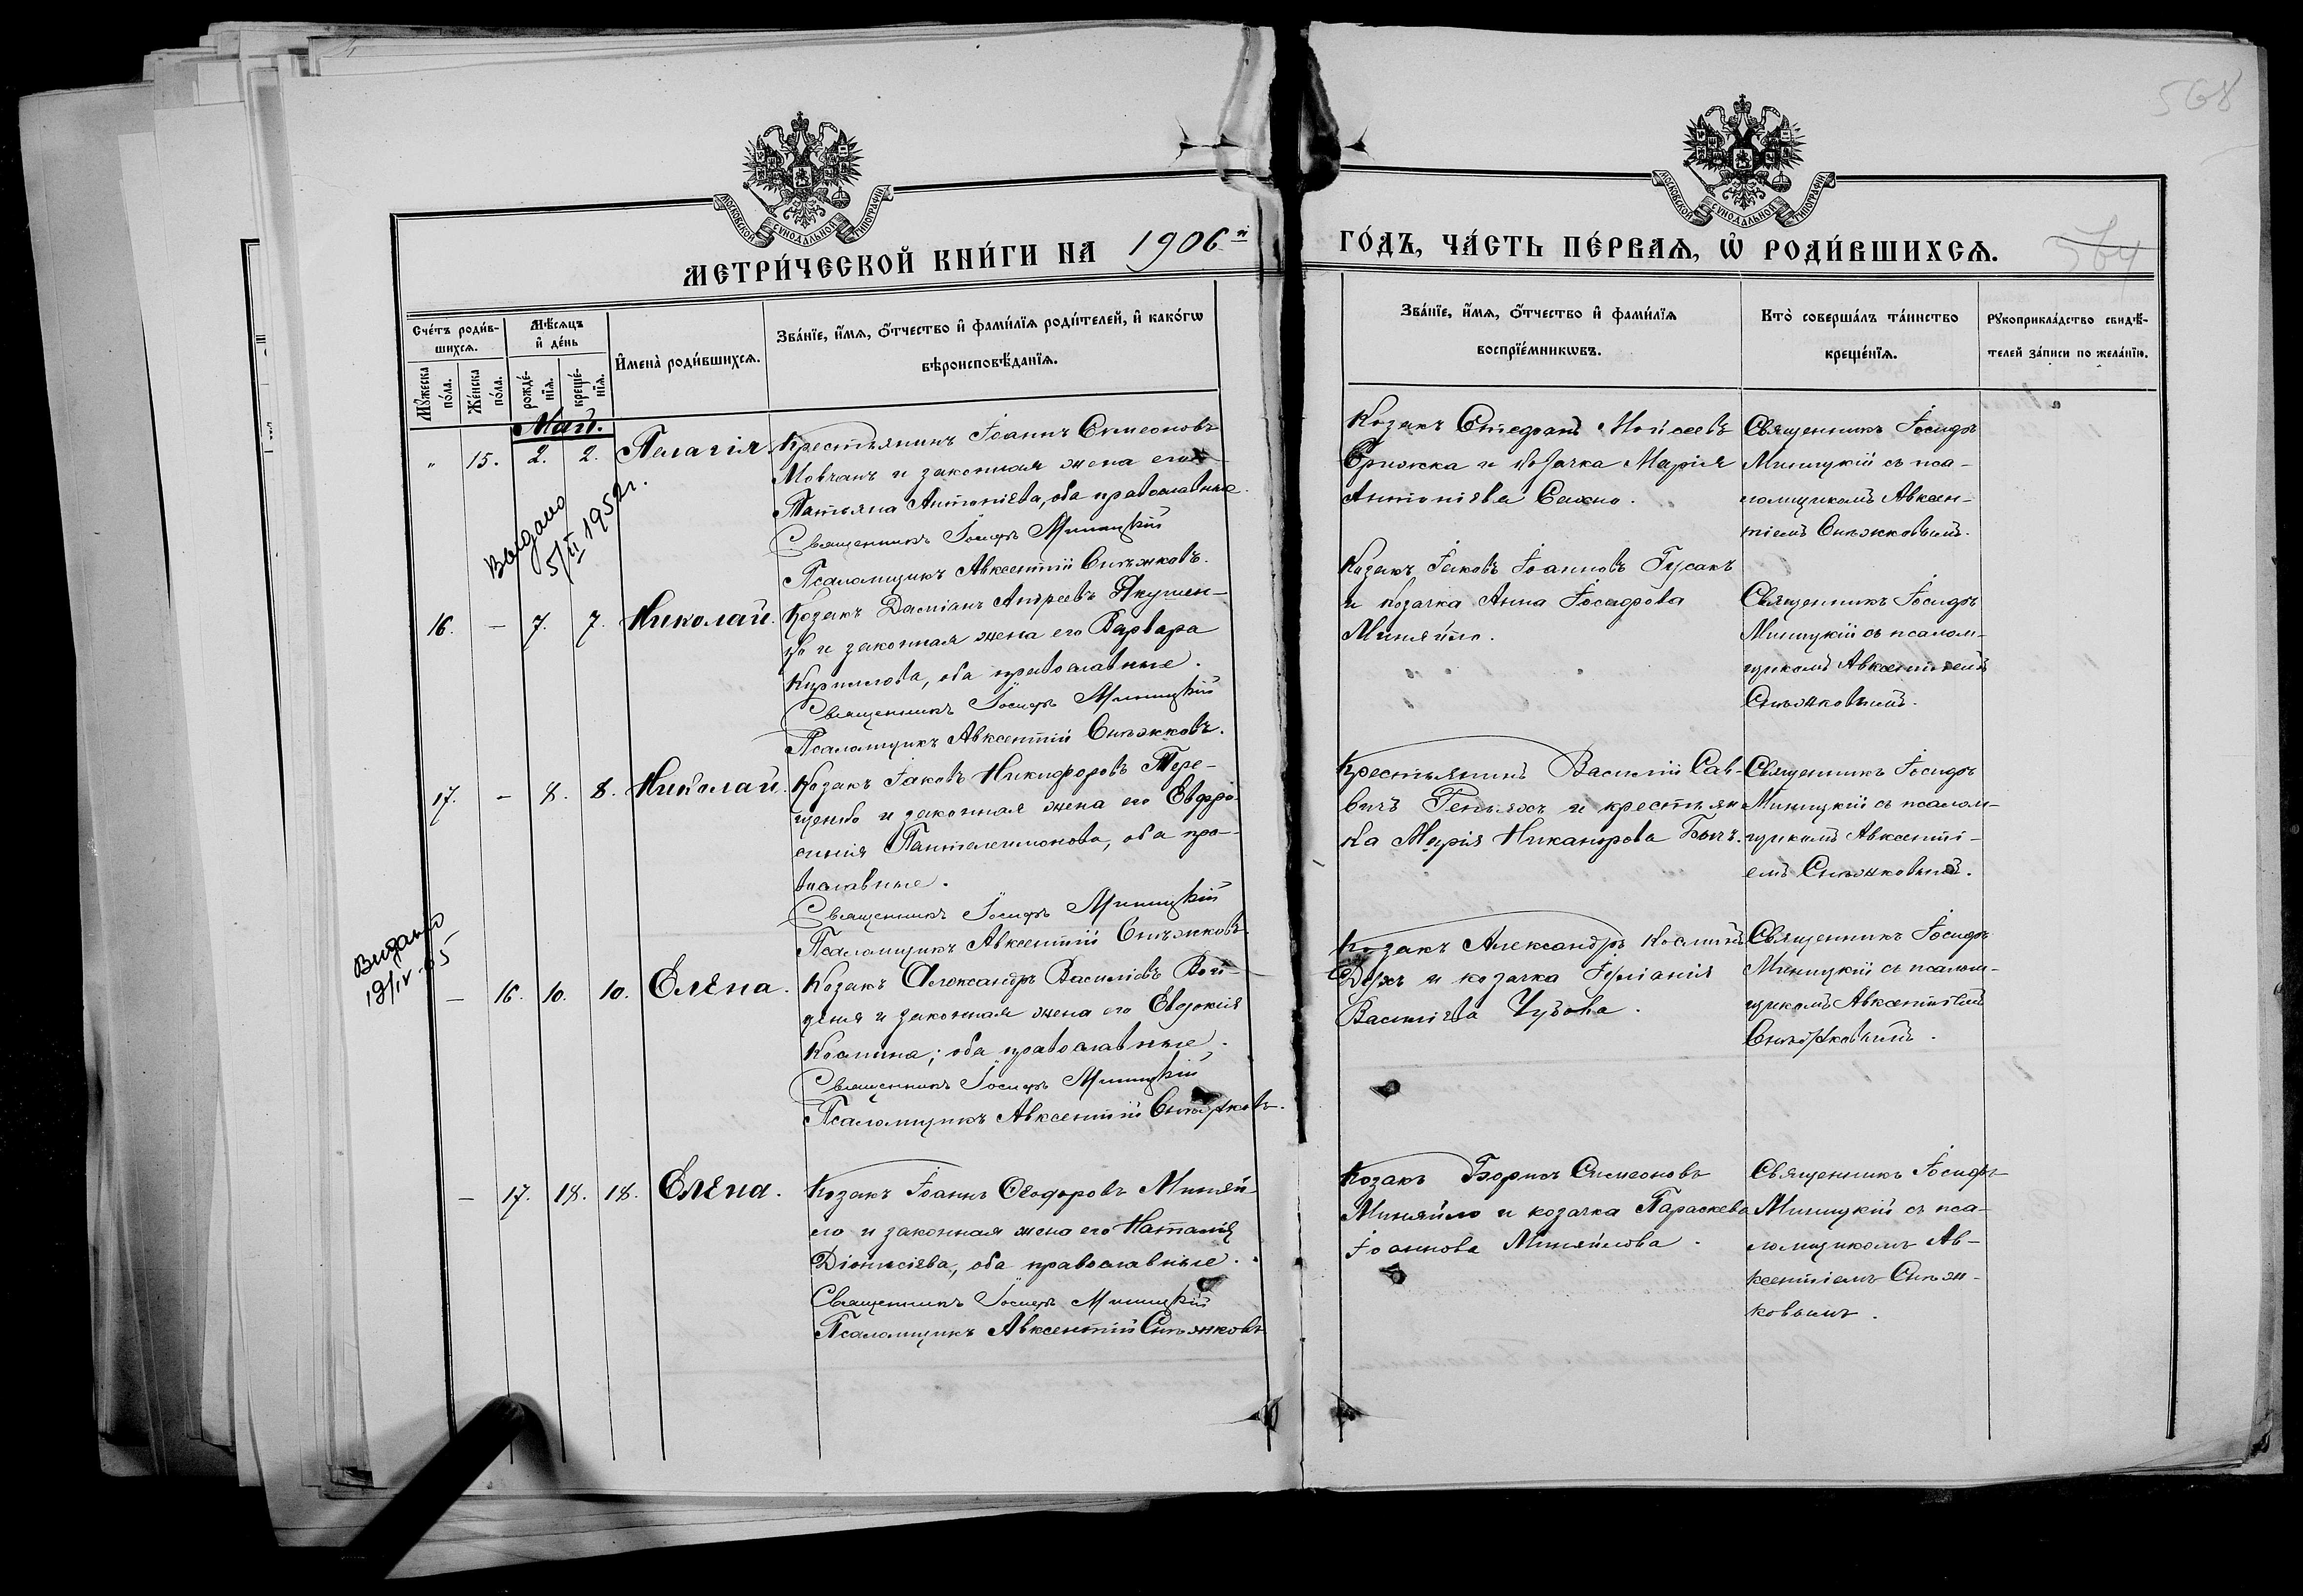 568
564
МОСКОВСКОЙ СѴНОДАЛЬНОЙ ТИПОГРАФІИ
МОСКОВСКОЙ СѴНОДАЛЬНОЙ ТИПОГРАФІИ
МЕТРИ́ЧЕСКОЙ КНИ́ГИ НА 1906 й ГО́ДЪ, ЧА́СТЬ ПЕ́РВАЯ, Ѽ РОДИ́ВШИХСЯ.
Сче́тъ роди́в-
шихся.
Мѣ́сяцъ
и҆ де́нь
Мꙋ́жеска
по́ла.
Же́нска
по́ла.
рожде́-
нїя.
креще́-
нїя.
И҆мена̀ роди́вшихся.
Зва́нїе, и҆́мя, ѻ҆́тчество и҆ фами́лїя роди́телей, и҆ како́гѡ
вѣроисповѣ́данїя.
Зва́нїе, и҆́мя, ѻ҆́тчество и҆ фами́лїя
воспрїе́мникѡвъ.
Кто̀ соверша́лъ та́инство
креще́нїя.
Рꙋкоприкла́дство свидѣ́-
телей за́писи по жела́нїю.
Май.
„ 15. 2. 2. Пелагія.
Крестьянинъ Іоаннъ Симеоновъ
Мовчанъ и законная жена его
Татьяна Антоніева, оба православные.
Священникъ Іосифъ Миницкій
Псаломщикъ Авксентій Снѣжковъ.
Козакъ Стефанъ Моисеевъ
и козачка Марія
Антоніева Сахно.
Священникъ Іосифъ
Миницкій съ пса-
ломщикомъ Авксен-
тіемъ Снѣжковымъ.
Выдано
5/VI 1952 г.
16. – 7. 7. Николай.
Козакъ Даміанъ Андреевъ Якушен-
ко и законная жена его Варвара
Кириллова, оба православные.
Священникъ Іосифъ Миницкій
Псаломщикъ Авксентій Снѣжковъ.
Козакъ Іаковъ Іоанновъ Гусакъ
и козачка Анна Іосифова
Миняйло.
Священникъ Іосифъ
Миницкій съ псалом-
щикомъ Авксентіемъ
Снѣжковымъ.
17. – 8. 8. Николай.
Козакъ Іаковъ Никифоровъ Тере-
щенко и законная жена его Евфро-
синія Пантелеимонова, оба пра-
вославные.
Священникъ Іосифъ Миницкій
Псаломщикъ Авксентій Снѣжковъ
Крестьянинъ Василій Сав-
вичъ и крестьян
ка Марія Никанорова Быкъ.
Священникъ Іосифъ
Миницкій съ псалом-
щикомъ Авксенті-
емъ Снѣжковымъ.
Видано
19/IV-65
– 16. 10. 10. Елена.
Козакъ Александръ Василіевъ Вой-
и законная жена его Евдокія
Космина; оба православные.
Священникъ Іосифъ Миницкій
Псаломщикъ Авксентій Снѣжковъ.
Козакъ Александръ Косминъ
и козачка Іуліанія
Василіева Чубова.
Священникъ Іосифъ
Миницкій съ псалом-
щикомъ Авксентіемъ
Снѣжковымъ.
– 17. 18. 18. Елена.
Козакъ Іоаннъ Ѳеодоровъ Миняй-
ло и законная жена его Наталія
Діонисіева, оба православные.
Священникъ Іосифъ Миницкій
Псаломщикъ Авксентій Снѣжковъ
Козакъ Борисъ Симеоновъ
Миняйло и козачка Параскева
Іоаннова Миняйлова.
Священникъ Іосифъ
Миницкій съ пса-
ломщикомъ Ав-
ксентіемъ Снѣж-
ковымъ.